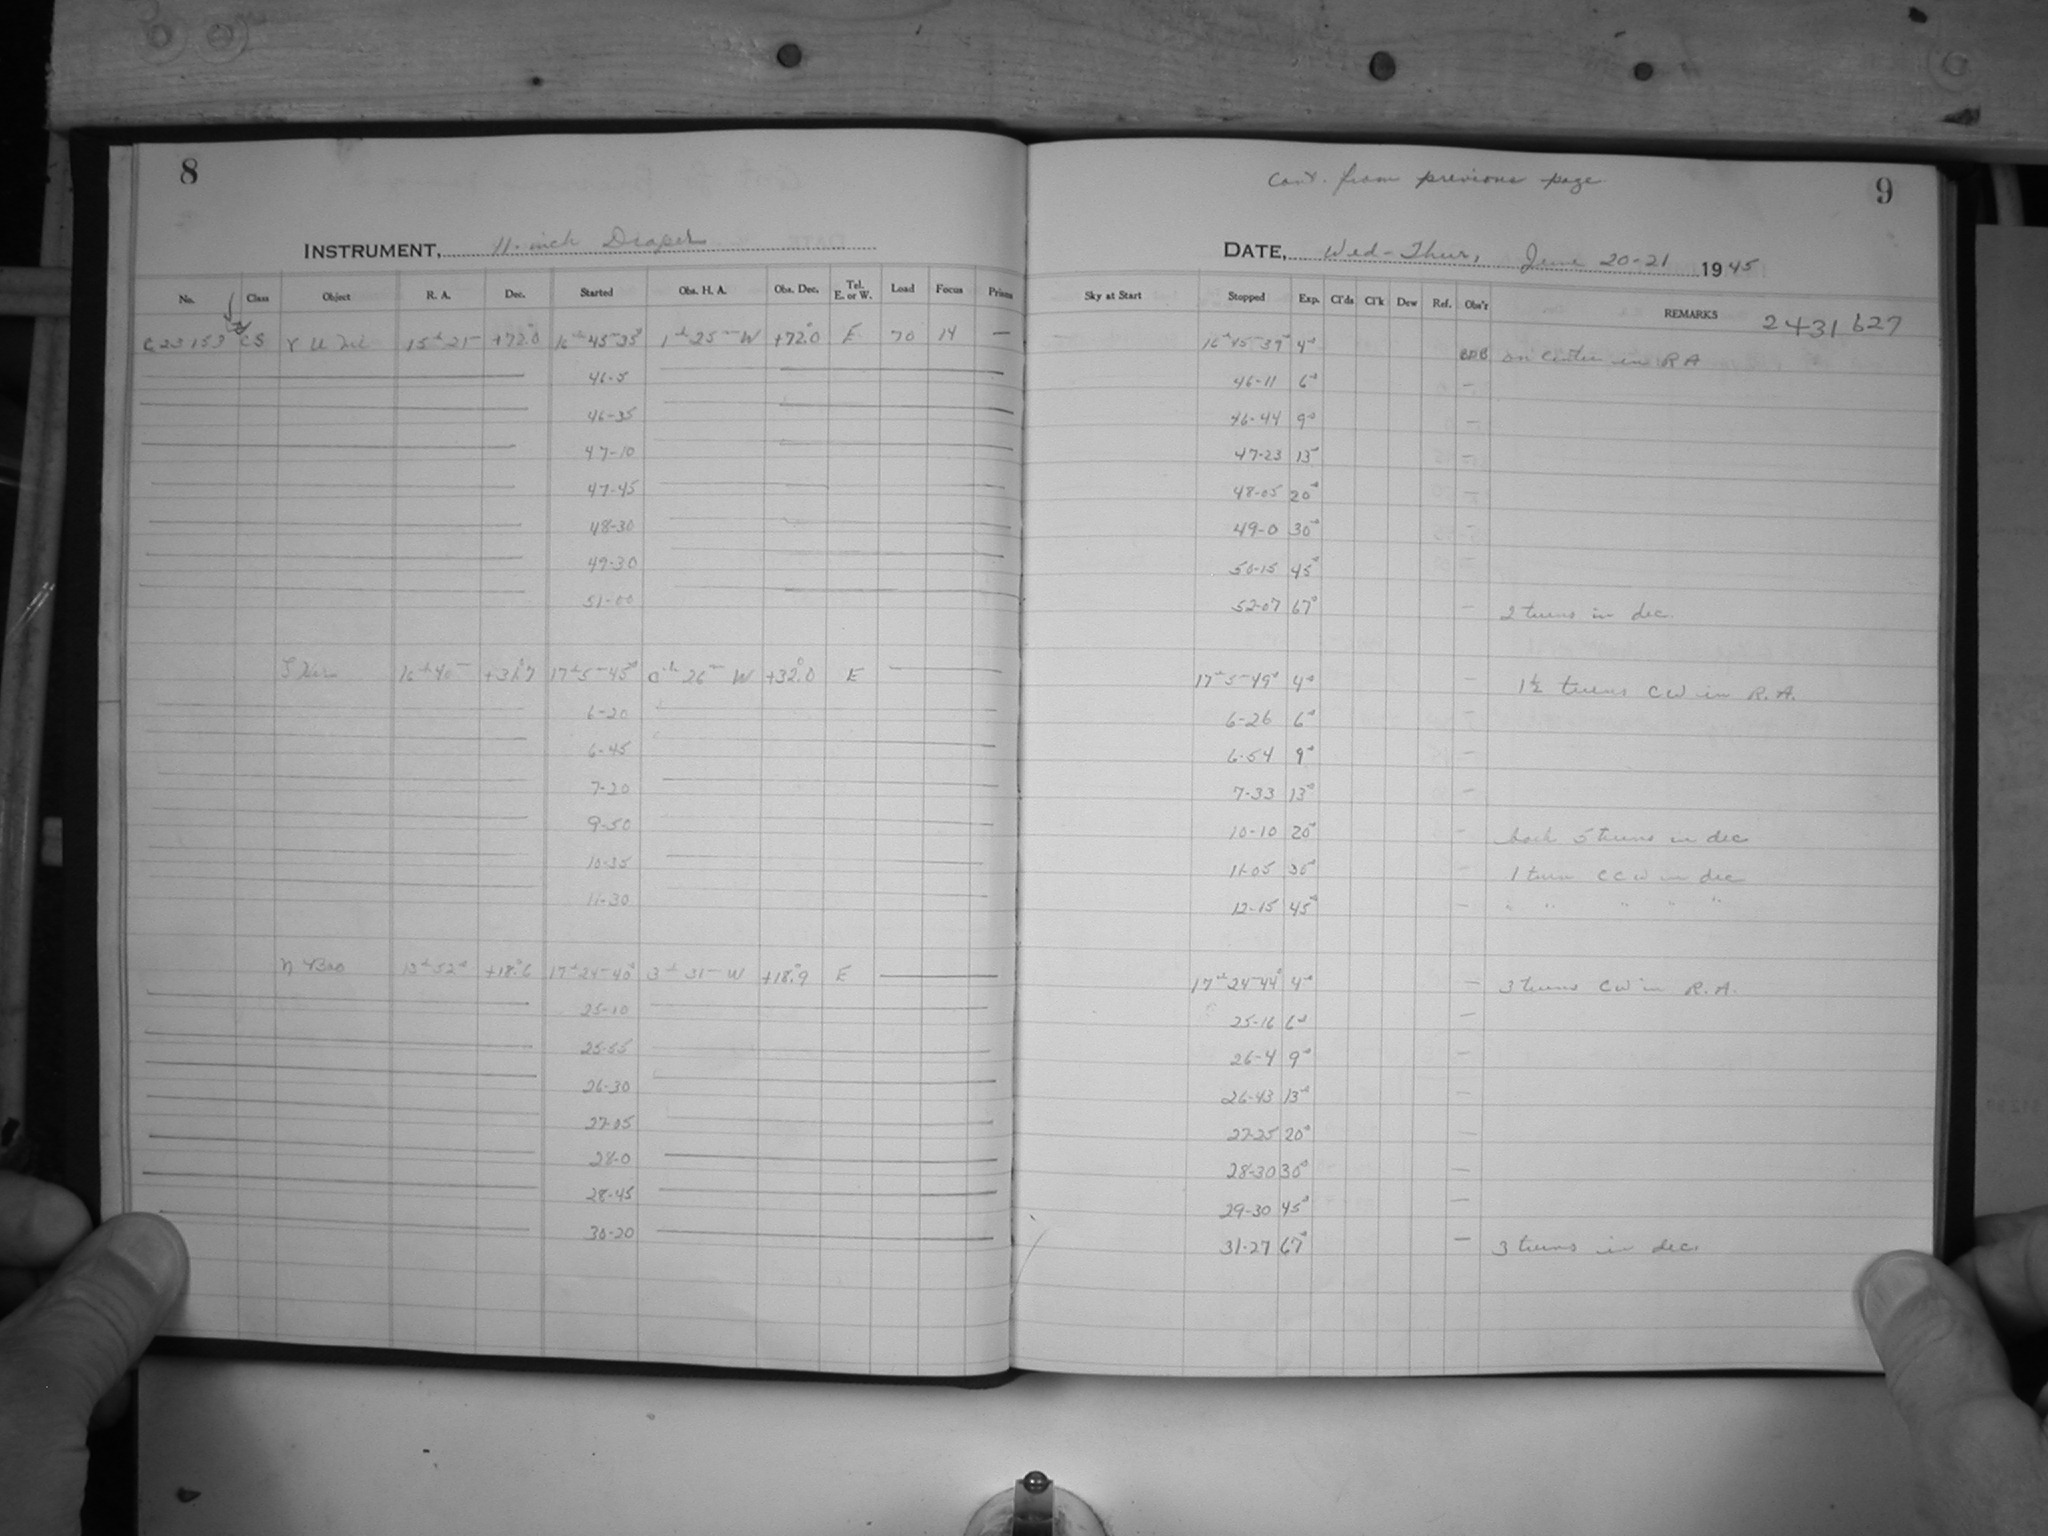 8
INSTRUMENT, 11-inch Draper
No. Class Object R. A. Dec. Started Obs. H. A. Obs. Dec. Tel. E. or W. Load Focus Prisms
C23153 CS 15h 21m +72.0° 16h 45m 35s 1h 25m W +72.0° E 70 14 —
46-5
46-35
47-10
47-45
48-30
49-30
51-00
16h 40m 17h 5m 45s 0h 26m W +32.0° E
6-20
6-45
7-20
9-50
10-35
11-30
η Boo 13h 52m +18.6° 17h 24m 40s 3h 31m W +18.9° E
25-10
25-55
26-30
27-05
28-0
28-45
30-20
Cont. from previous page
9
DATE, Wed-Thur, June 20-21 1945
Sky at Start Stopped Exp. Cl'ds Cl'k Dew Ref. Obs'r REMARKS 2431627
16h 45m 39s 4s BDB on center in RA
46-11 6s —
46-44 9s —
47-23 13s —
48-05 20s —
49-0 30s —
50-15 45s —
52-07 67s — 2 turns in dec.
17h 5m 49s 4s — 1½ turns CW in R.A.
6-26 6s —
6-54 9s —
7-33 13s —
10-10 20s — back 5 turns in dec
11-05 30s — 1 turn CCW in dec
12-15 45s — " " " " "
17h 24m 44s 4s — 3 turns CW in R.A.
25-16 6s —
26-4 9s —
26-43 13s —
27-25 20s —
28-30 30s —
29-30 45s —
31-27 67s — 3 turns in dec.